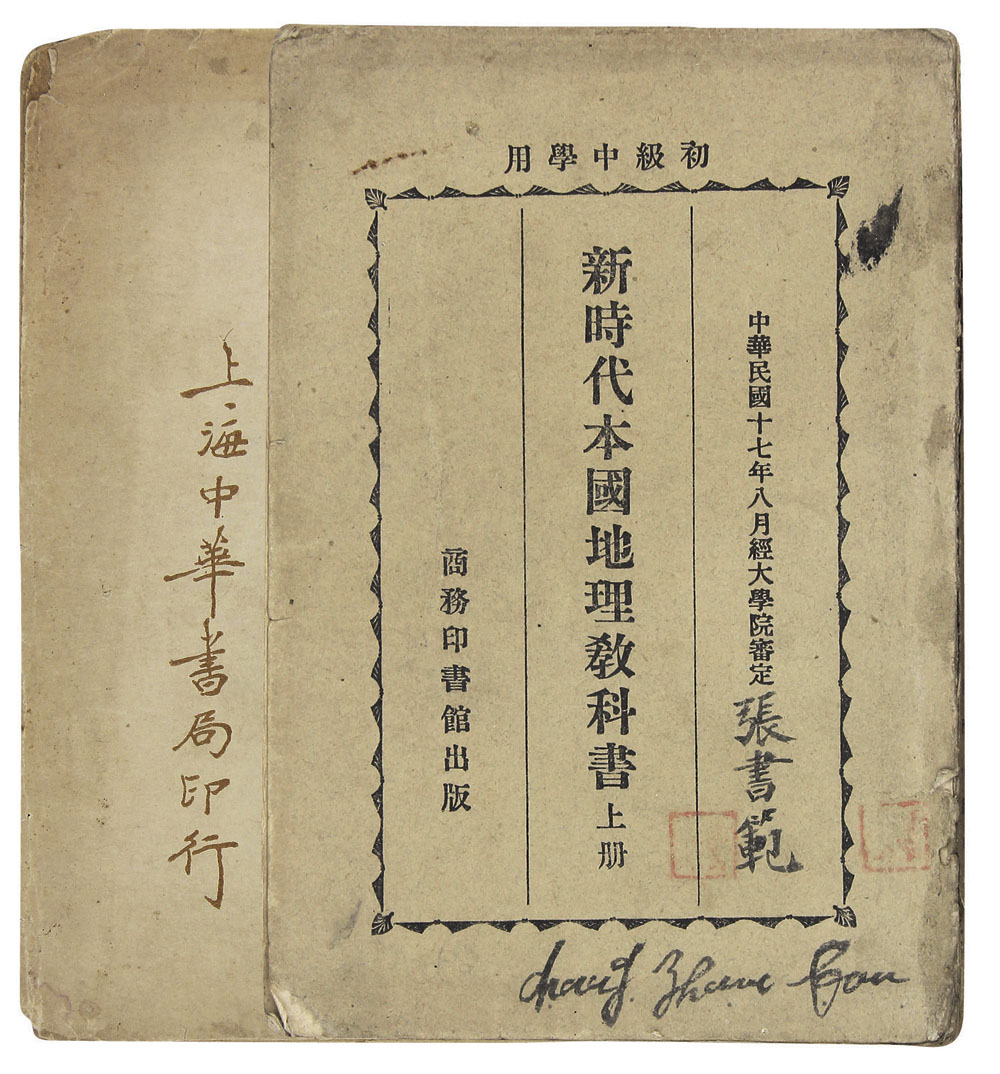 初級中學用
中華民國十七年八月經大學院審定
張書範
新時代本國地理教科書 上册
商務印書館出版
上海中華書局印行